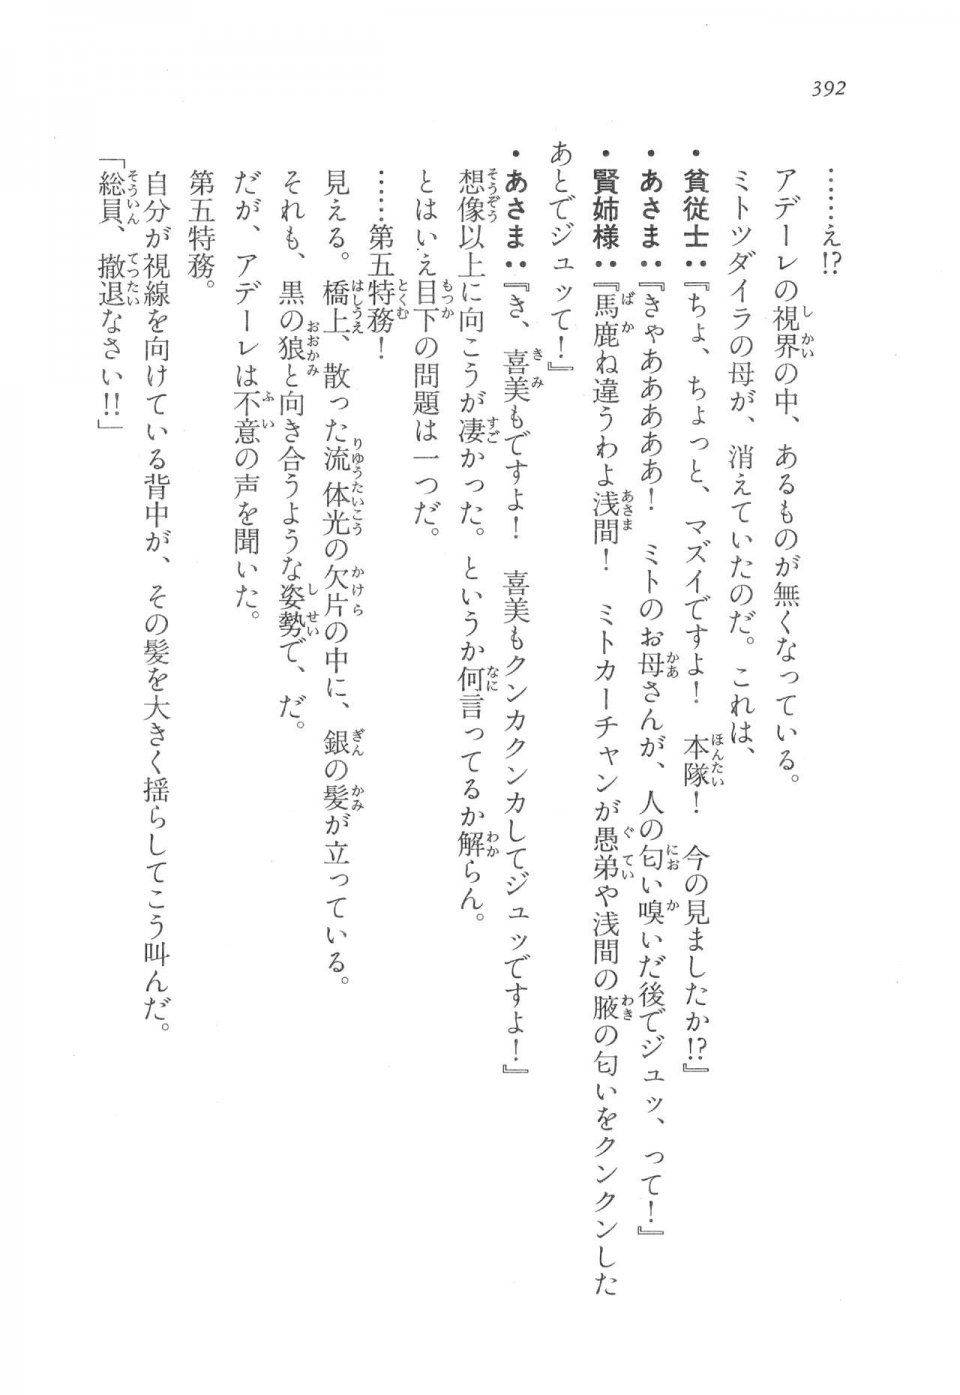 392
……え!?
アデーレの視界の中、あるものが無くなっている。
ミトツダイラの母が、消えていたのだ。これは、
・貧従士：『ちょ、ちょっと、マズイですよ！　本隊！　今の見ましたか!?』
・あさま：『きゃああああ！　ミトのお母さんが、人の匂い嗅いだ後でジュッ、って！』
・賢姉様：『馬鹿ね違うわよ浅間！　ミトカーチャンが愚弟や浅間の腋の匂いをクンクンした
あとでジュッて！』
・あさま：『き、喜美もですよ！　喜美もクンカクンカしてジュッですよ！』
想像以上に向こうが凄かった。というか何言ってるか解らん。
とはいえ目下の問題は一つだ。
……第五特務！
見える。橋上、散った流体光の欠片の中に、銀の髪が立っている。
それも、黒の狼と向き合うような姿勢で、だ。
だが、アデーレは不意の声を聞いた。
第五特務。
自分が視線を向けている背中が、その髪を大きく揺らしてこう叫んだ。
「総員、撤退なさい!!」